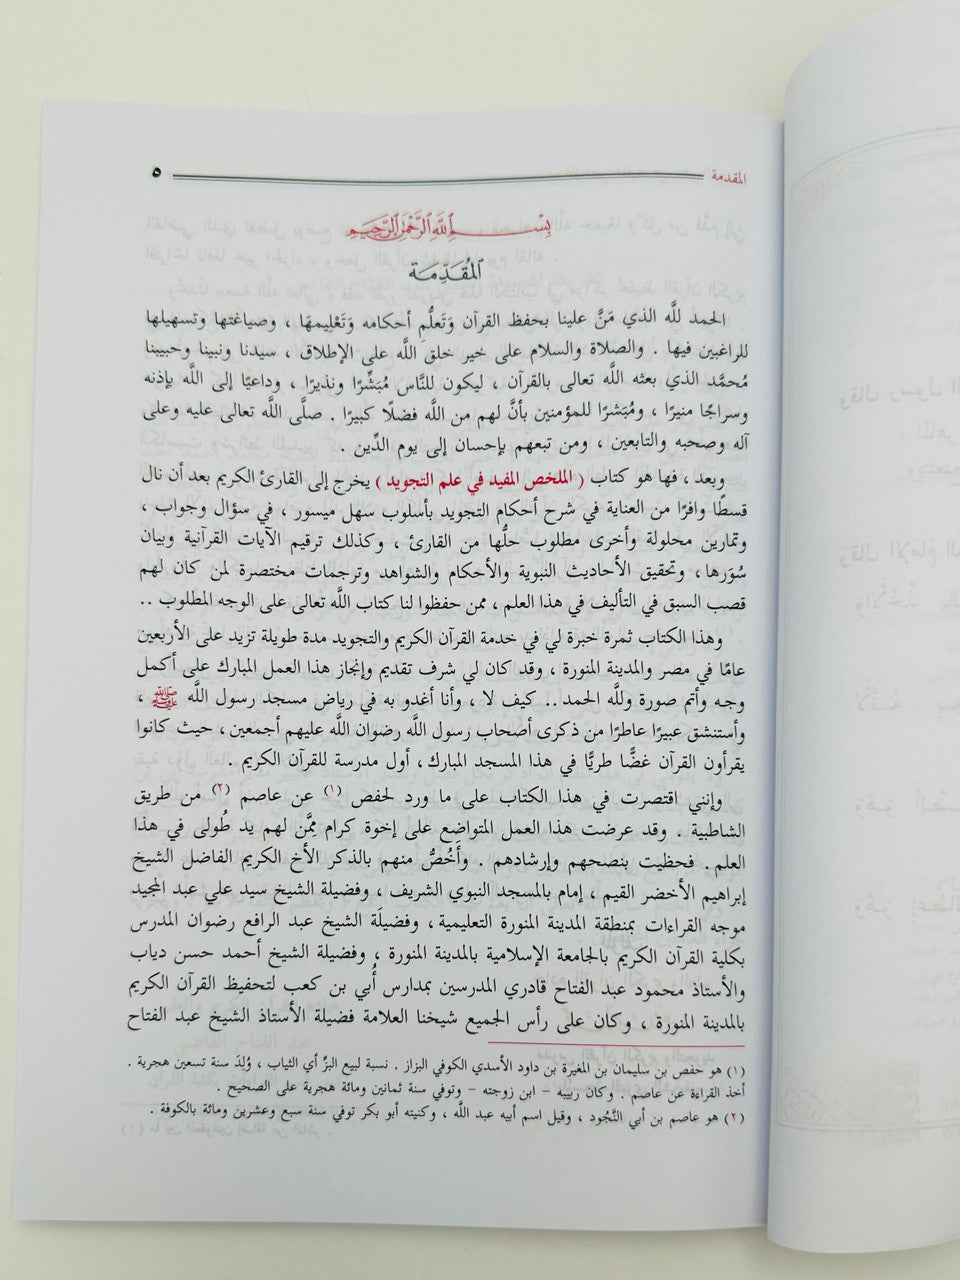 المقدمة ٥
بِسْمِ ٱللَّهِ ٱلرَّحْمَٰنِ ٱلرَّحِيمِ
المُقَدِّمَة
الحمد للَّه الذي مَنَّ علينا بحفظ القرآن وَتَعلُّمِ أحكامه وَتَعْلِيمهَا ، وصياغتها وتسهيلها
للراغبين فيها . والصلاة والسلام على خير خلق اللَّه على الإطلاق ، سيدنا ونبينا وحبيبنا
مُحمَّد الذي بعثه اللَّه تعالى بالقرآن ، ليكون للنَّاس مُبَشِّرًا ونذيرًا ، وداعيًا إلى اللَّه بإذنه
وسراجًا منيرًا ، ومُبَشرًا للمؤمنين بأنَّ لهم من اللَّه فضلًا كبيرًا . صلَّى اللَّه تعالى عليه وعلى
آله وصحبه والتابعين ، ومن تبعهم بإحسان إلى يوم الدِّين .
وبعد ، فها هو كتاب ( الملخص المفيد في علم التجويد ) يخرج إلى القارئ الكريم بعد أن نال
قسطًا وافرًا من العناية في شرح أحكام التجويد بأسلوب سهل ميسور ، في سؤال وجواب ،
وتمارين محلولة وأخرى مطلوب حلُّها من القارئ ، وكذلك ترقيم الآيات القرآنية وبيان
سُوَرها ، وتحقيق الأحاديث النبوية والأحكام والشواهد وترجمات مختصرة لمن كان لهم
قصب السبق في التأليف في هذا العلم ، ممن حفظوا لنا كتاب اللَّه تعالى على الوجه المطلوب ..
وهذا الكتاب ثمرة خبرة لي في خدمة القرآن الكريم والتجويد مدة طويلة تزيد على الأربعين
عامًا في مصر والمدينة المنورة ، وقد كان لي شرف تقديم وإنجاز هذا العمل المبارك على أكمل
وجه وأتم صورة وللَّه الحمد .. كيف لا ، وأنا أغدو به في رياض مسجد رسول اللَّه ﷺ ،
وأستنشق عبيرًا عاطرًا من ذكرى أصحاب رسول اللَّه رضوان اللَّه عليهم أجمعين ، حيث كانوا
يقرأون القرآن غضًّا طريًّا في هذا المسجد المبارك ، أول مدرسة للقرآن الكريم .
وإنني اقتصرت في هذا الكتاب على ما ورد لحفص (١) عن عاصم (٢) من طريق
الشاطبية . وقد عرضت هذا العمل المتواضِع على إخوة كرام مِمَّن لهم يد طُولى في هذا
العلم . فحظيت بنصحهم وإرشادهم . وأَخُصُّ منهم بالذكر الأخ الكريم الفاضل الشيخ
إبراهيم الأخضر القيم ، إمام بالمسجد النبوي الشريف ، وفضيلة الشيخ سيد علي عبد المجيد
موجه القراءات بمنطقة المدينة المنورة التعليمية ، وفضيلَة الشيخ عبد الرافع رضوان المدرس
بكلية القرآن الكريم بالجامعة الإسلامية بالمدينة المنورة ، وفضيلة الشيخ أحمد حسن دياب
والأستاذ محمود عبد الفتاح قادري المدرسين بمدارس أُبي بن كعب لتحفيظ القرآن الكريم
بالمدينة المنورة ، وكان على رأس الجميع شيخنا العلامة فضيلة الأستاذ الشيخ عبد الفتاح
(١) هو حفص بن سليمان بن المغيرة بن داود الأسدي الكوفي البزاز . نسبة لبيع البزِّ أي الثياب ، وُلِدَ سنة تسعين هجرية .
أخذ القراءة عن عاصم . وكان ربيبه - ابن زوجته - وتوفي سنة ثمانين ومائة هجرية على الصحيح .
(٢) هو عاصم بن أبي النَّجُود ، وقيل اسم أبيه عبد اللَّه ، وكنيته أبو بكر توفي سنة سبع وعشرين ومائة بالكوفة .